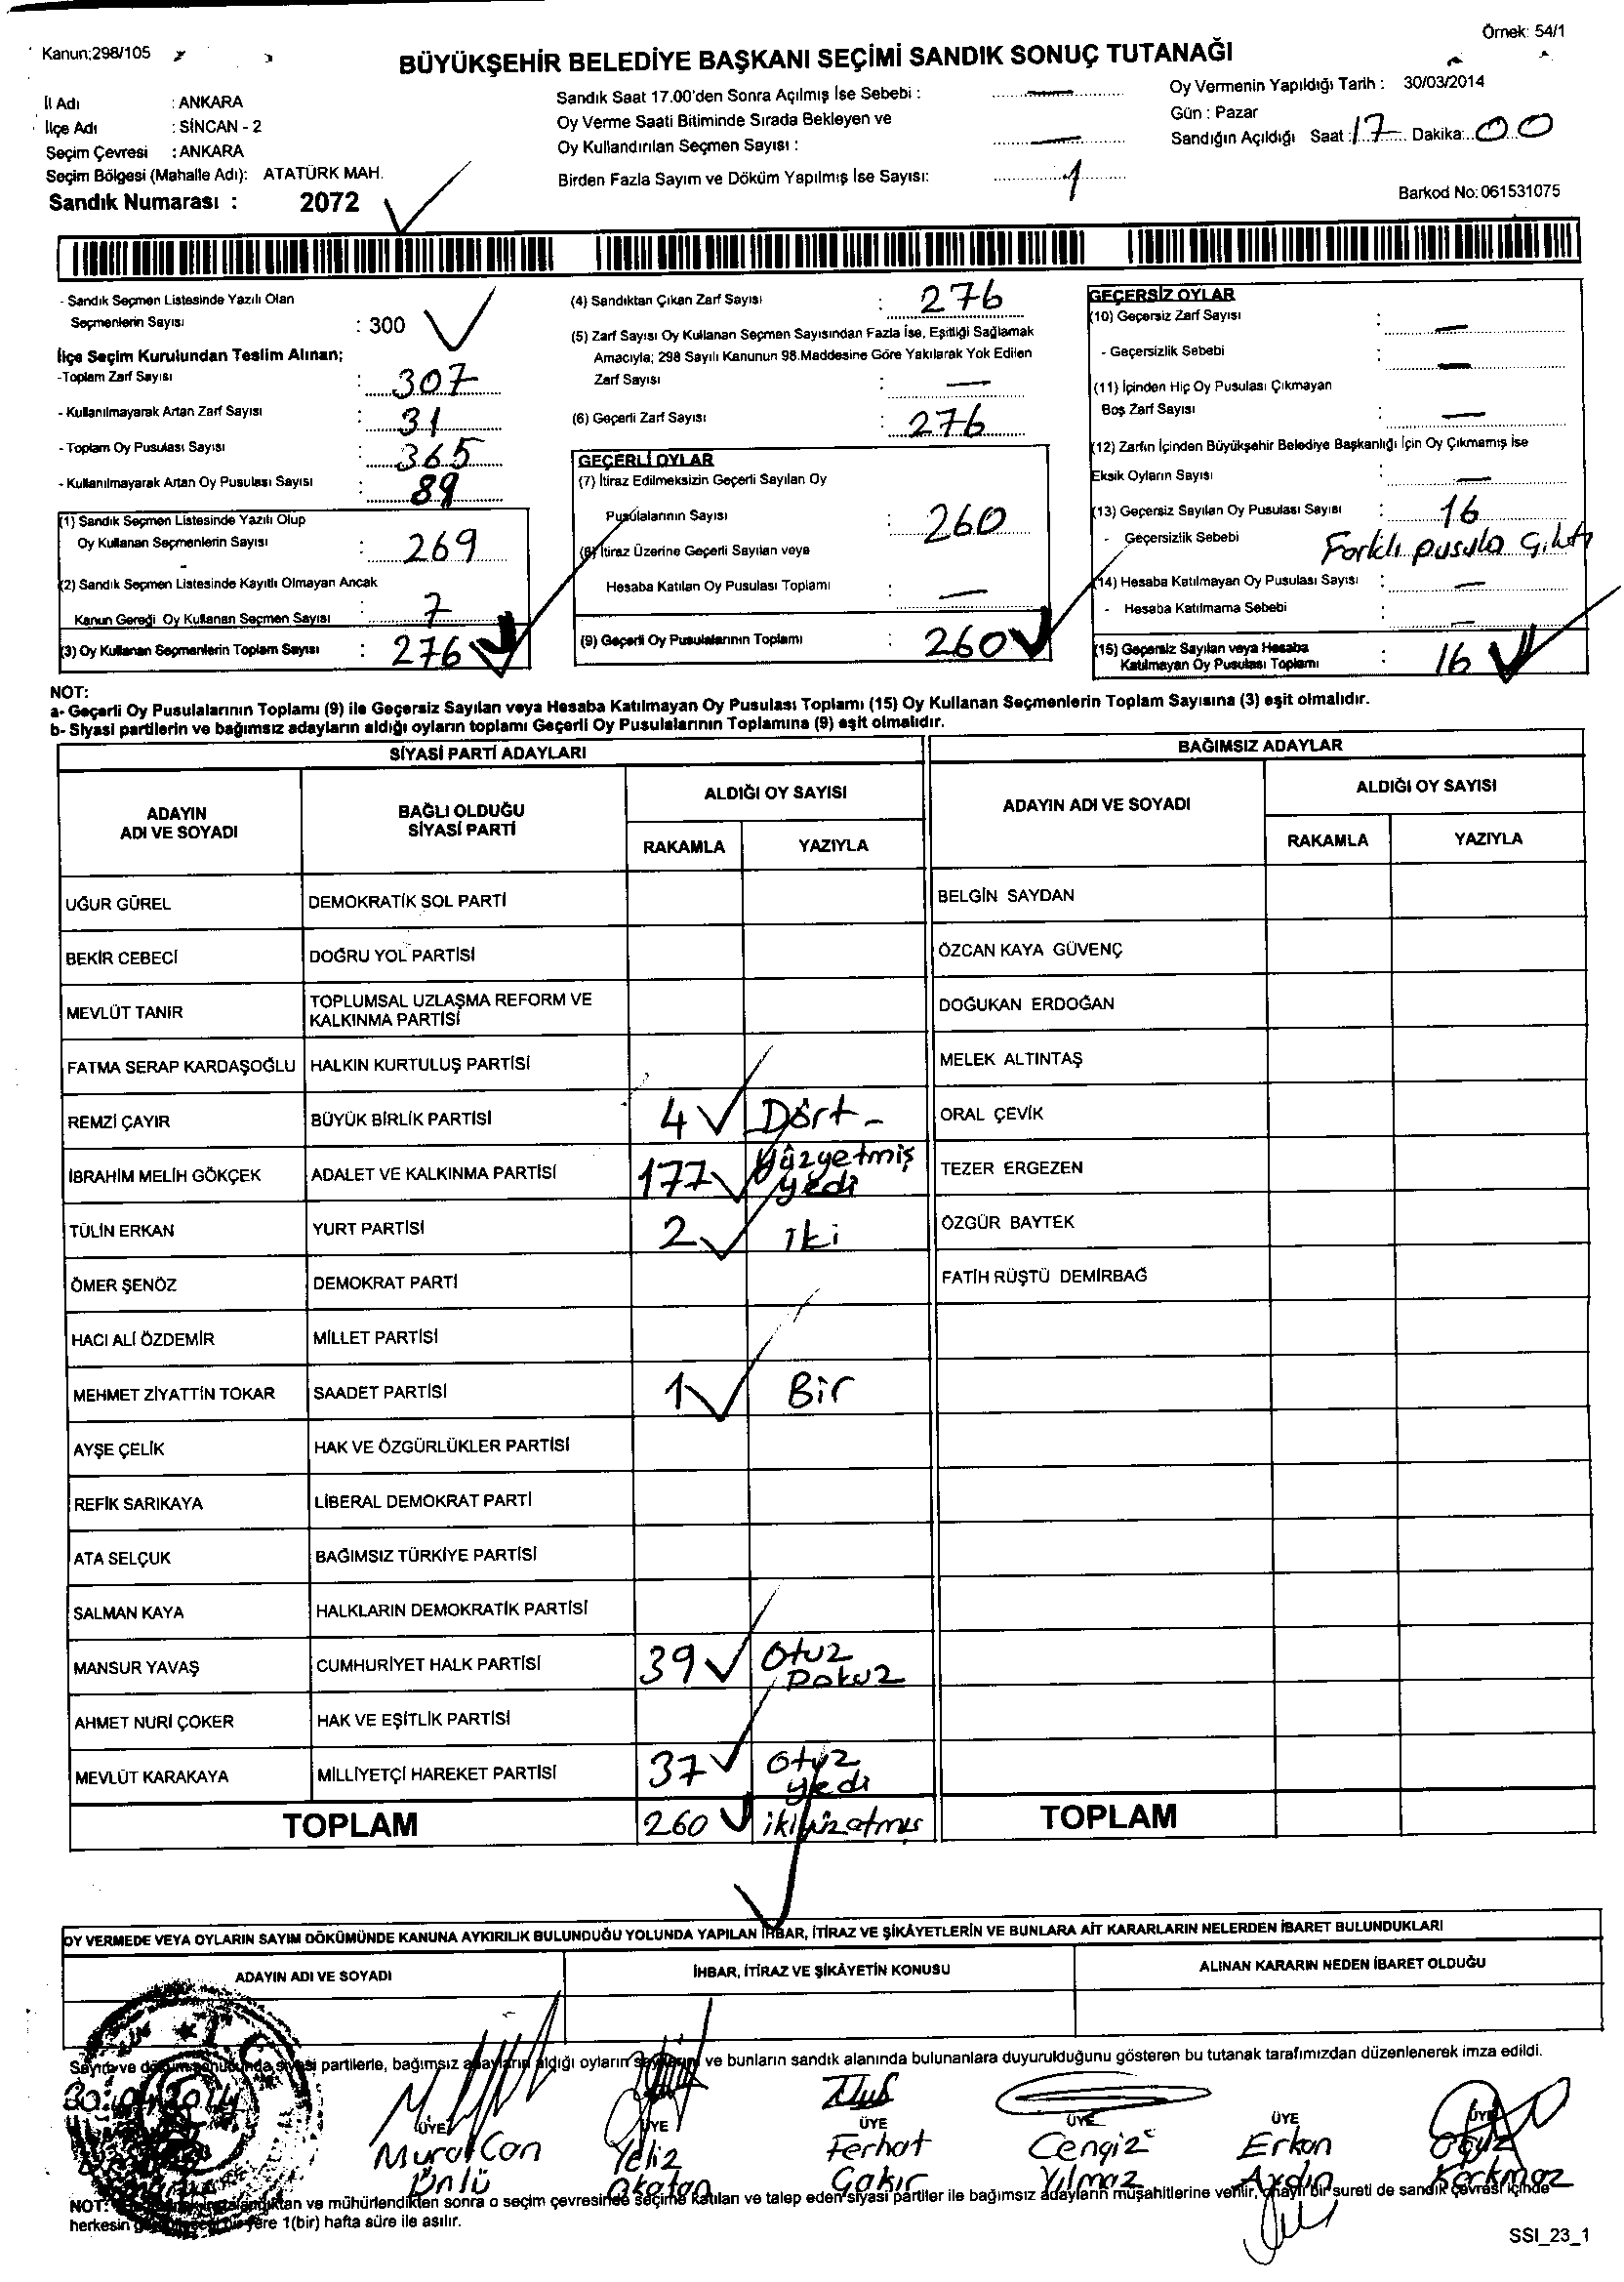 Kanun:298/105
Örnek: 54/1
BÜYÜKŞEHİR BELEDİYE BAŞKANI SEÇİMİ SANDIK SONUÇ TUTANAĞI
İl Adı : ANKARA
İlçe Adı : SİNCAN - 2
Seçim Çevresi : ANKARA
Seçim Bölgesi (Mahalle Adı): ATATÜRK MAH.
Sandık Numarası : 2072
Sandık Saat 17.00'den Sonra Açılmış İse Sebebi : —
Oy Verme Saati Bitiminde Sırada Bekleyen ve
Oy Kullandırılan Seçmen Sayısı : —
Birden Fazla Sayım ve Döküm Yapılmış İse Sayısı: 1
Oy Vermenin Yapıldığı Tarih : 30/03/2014
Gün : Pazar
Sandığın Açıldığı Saat : 17 Dakika: 00
Barkod No: 061531075
- Sandık Seçmen Listesinde Yazılı Olan
Seçmenlerin Sayısı : 300
İlçe Seçim Kurulundan Teslim Alınan;
-Toplam Zarf Sayısı : 307
- Kullanılmayarak Artan Zarf Sayısı : 31
- Toplam Oy Pusulası Sayısı : 365
- Kullanılmayarak Artan Oy Pusulası Sayısı : 89
(1) Sandık Seçmen Listesinde Yazılı Olup
Oy Kullanan Seçmenlerin Sayısı : 269
(2) Sandık Seçmen Listesinde Kayıtlı Olmayan Ancak
Kanun Gereği Oy Kullanan Seçmen Sayısı : 7
(3) Oy Kullanan Seçmenlerin Toplam Sayısı : 276
(4) Sandıktan Çıkan Zarf Sayısı : 276
(5) Zarf Sayısı Oy Kullanan Seçmen Sayısından Fazla İse, Eşitliği Sağlamak
Amacıyla; 298 Sayılı Kanunun 98.Maddesine Göre Yakılarak Yok Edilen
Zarf Sayısı : —
(6) Geçerli Zarf Sayısı : 276
GEÇERLİ OYLAR
(7) İtiraz Edilmeksizin Geçerli Sayılan Oy
Pusulalarının Sayısı : 260
(8) İtiraz Üzerine Geçerli Sayılan veya
Hesaba Katılan Oy Pusulası Toplamı : —
(9) Geçerli Oy Pusulalarının Toplamı : 260
GEÇERSİZ OYLAR
(10) Geçersiz Zarf Sayısı : —
- Geçersizlik Sebebi : —
(11) İçinden Hiç Oy Pusulası Çıkmayan
Boş Zarf Sayısı : —
(12) Zarfın İçinden Büyükşehir Belediye Başkanlığı İçin Oy Çıkmamış İse
Eksik Oyların Sayısı : —
(13) Geçersiz Sayılan Oy Pusulası Sayısı : 16
- Geçersizlik Sebebi Farklı pusula çıktı
(14) Hesaba Katılmayan Oy Pusulası Sayısı : —
- Hesaba Katılmama Sebebi : —
(15) Geçersiz Sayılan veya Hesaba
Katılmayan Oy Pusulası Toplamı : 16
NOT:
a- Geçerli Oy Pusulalarının Toplamı (9) ile Geçersiz Sayılan veya Hesaba Katılmayan Oy Pusulası Toplamı (15) Oy Kullanan Seçmenlerin Toplam Sayısına (3) eşit olmalıdır.
b- Siyasi partilerin ve bağımsız adayların aldığı oyların toplamı Geçerli Oy Pusulalarının Toplamına (9) eşit olmalıdır.
SİYASİ PARTİ ADAYLARI
ADAYIN
ADI VE SOYADI
BAĞLI OLDUĞU
SİYASİ PARTİ
ALDIĞI OY SAYISI
RAKAMLA YAZIYLA
UĞUR GÜREL DEMOKRATİK SOL PARTİ
BEKİR CEBECİ DOĞRU YOL PARTİSİ
MEVLÜT TANIR TOPLUMSAL UZLAŞMA REFORM VE
KALKINMA PARTİSİ
FATMA SERAP KARDAŞOĞLU HALKIN KURTULUŞ PARTİSİ
REMZİ ÇAYIR BÜYÜK BİRLİK PARTİSİ 4 Dört -
İBRAHİM MELİH GÖKÇEK ADALET VE KALKINMA PARTİSİ 177 Yüzyetmiş
yedi
TÜLİN ERKAN YURT PARTİSİ 2 iki
ÖMER ŞENÖZ DEMOKRAT PARTİ
HACI ALİ ÖZDEMİR MİLLET PARTİSİ
MEHMET ZİYATTİN TOKAR SAADET PARTİSİ 1 Bir
AYŞE ÇELİK HAK VE ÖZGÜRLÜKLER PARTİSİ
REFİK SARIKAYA LİBERAL DEMOKRAT PARTİ
ATA SELÇUK BAĞIMSIZ TÜRKİYE PARTİSİ
SALMAN KAYA HALKLARIN DEMOKRATİK PARTİSİ
MANSUR YAVAŞ CUMHURİYET HALK PARTİSİ 39 Otuz
Dokuz
AHMET NURİ ÇOKER HAK VE EŞİTLİK PARTİSİ
MEVLÜT KARAKAYA MİLLİYETÇİ HAREKET PARTİSİ 37 Otuz
yedi
TOPLAM 260 ikiyüzatmış
BAĞIMSIZ ADAYLAR
ADAYIN ADI VE SOYADI
ALDIĞI OY SAYISI
RAKAMLA YAZIYLA
BELGİN SAYDAN
ÖZCAN KAYA GÜVENÇ
DOĞUKAN ERDOĞAN
MELEK ALTINTAŞ
ORAL ÇEVİK
TEZER ERGEZEN
ÖZGÜR BAYTEK
FATİH RÜŞTÜ DEMİRBAĞ
TOPLAM
OY VERMEDE VEYA OYLARIN SAYIM DÖKÜMÜNDE KANUNA AYKIRILIK BULUNDUĞU YOLUNDA YAPILAN İHBAR, İTİRAZ VE ŞİKÂYETLERİN VE BUNLARA AİT KARARLARIN NELERDEN İBARET BULUNDUKLARI
ADAYIN ADI VE SOYADI
İHBAR, İTİRAZ VE ŞİKÂYETİN KONUSU
ALINAN KARARIN NEDEN İBARET OLDUĞU
Sayım ve döküm sonucunda siyasi partilerle, bağımsız adayların aldığı oyların ve bunların sandık alanında bulunanlara duyurulduğunu gösteren bu tutanak tarafımızdan düzenlenerek imza edildi.
ÜYE ÜYE ÜYE ÜYE ÜYE ÜYE
Murat Can Yeliz Ferhat Cengiz Erkan Oğuz
Ünlü Okatan Çakır Yılmaz Aydın Korkmaz
NOT: ve mühürlendikten sonra o seçim çevresinde seçime katılan ve talep eden siyasi partiler ile bağımsız adayların müşahitlerine verilir, onaylı bir sureti de sandık çevresi içinde
herkesin yere 1(bir) hafta süre ile asılır.
SSI_23_1